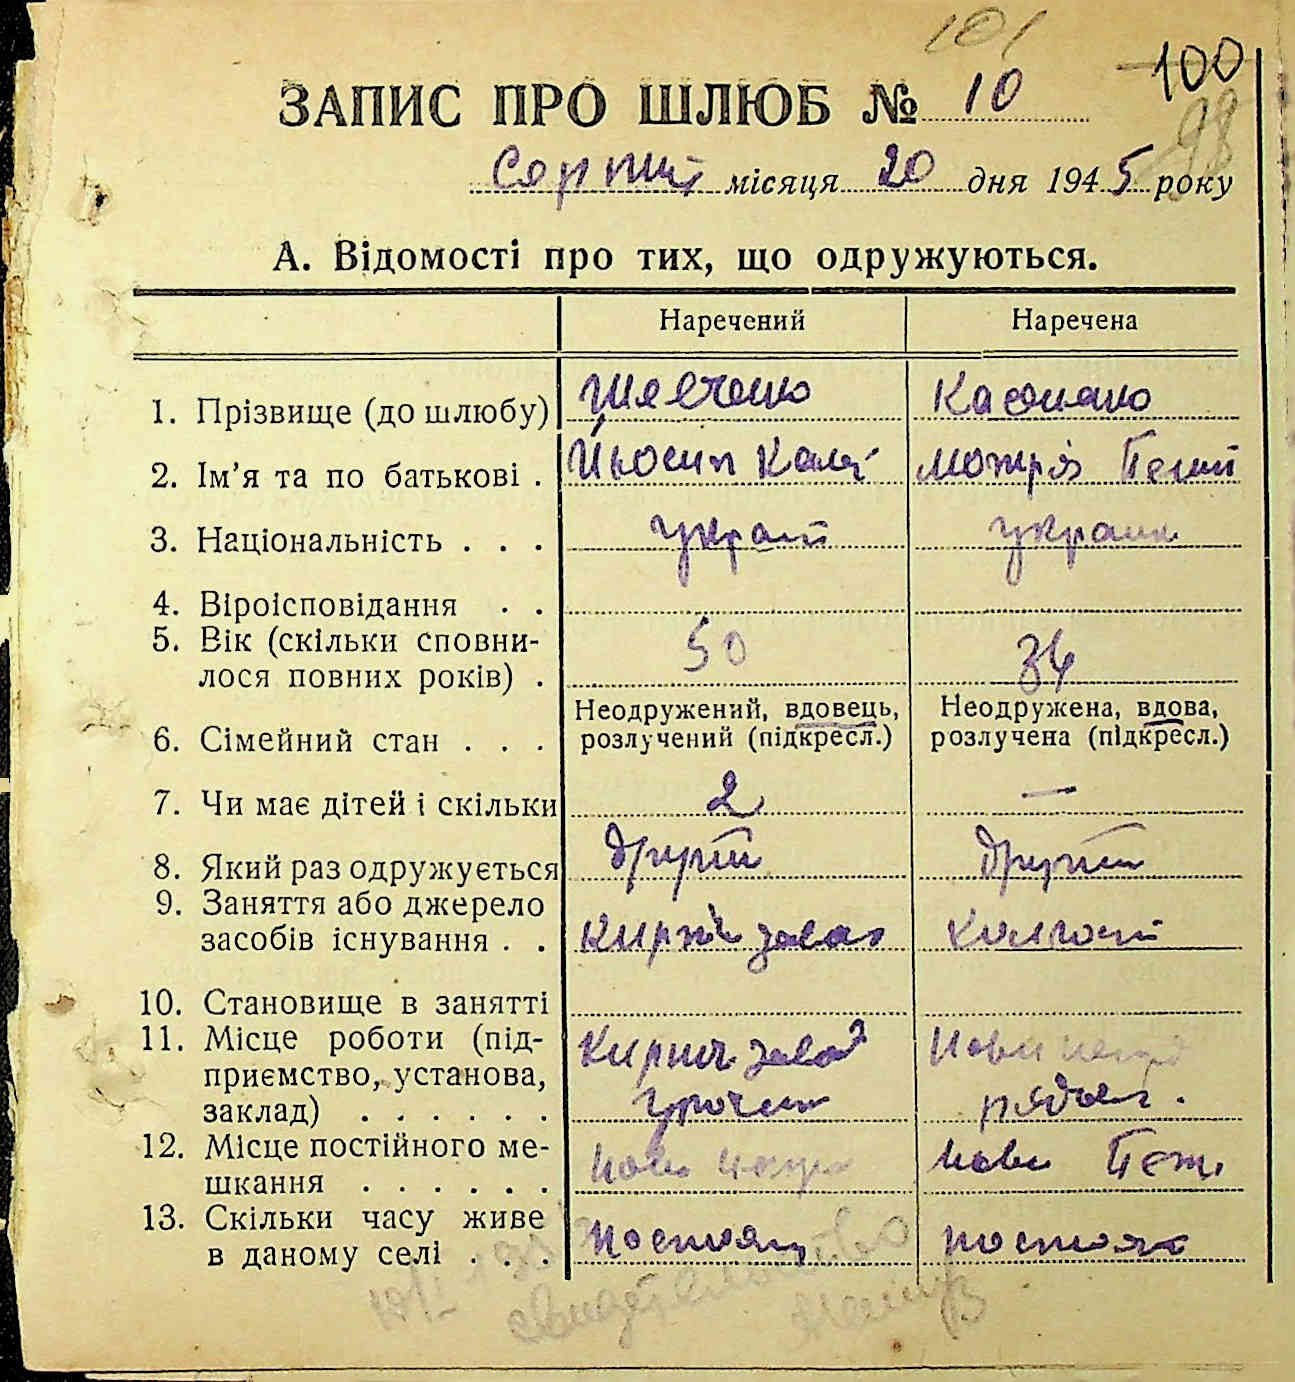 101
100
98
ЗАПИС ПРО ШЛЮБ № 10
місяця 20 дня 1945 року
А. Відомості про тих, що одружуються.
Наречений Наречена
1. Прізвище (до шлюбу) Шевченко
2. Ім'я та по батькові . Йносип Кали Мотря
3. Національність . . . україн україн
4. Віроісповідання . .
5. Вік (скільки сповни-
лося повних років) . 50 34
6. Сімейний стан . . . Неодружений, вдовець, розлучений (підкресл.) Неодружена, вдова, розлучена (підкресл.)
7. Чи має дітей і скільки 2 —
8. Який раз одружується другий другий
9. Заняття або джерело
засобів існування . . завод колгосп
10. Становище в занятті
11. Місце роботи (під-
приємство, установа, завод
заклад) . . . . . . рядов.
12. Місце постійного ме-
шкання . . . . . . Нови Нови
13. Скільки часу живе
в даному селі . . .